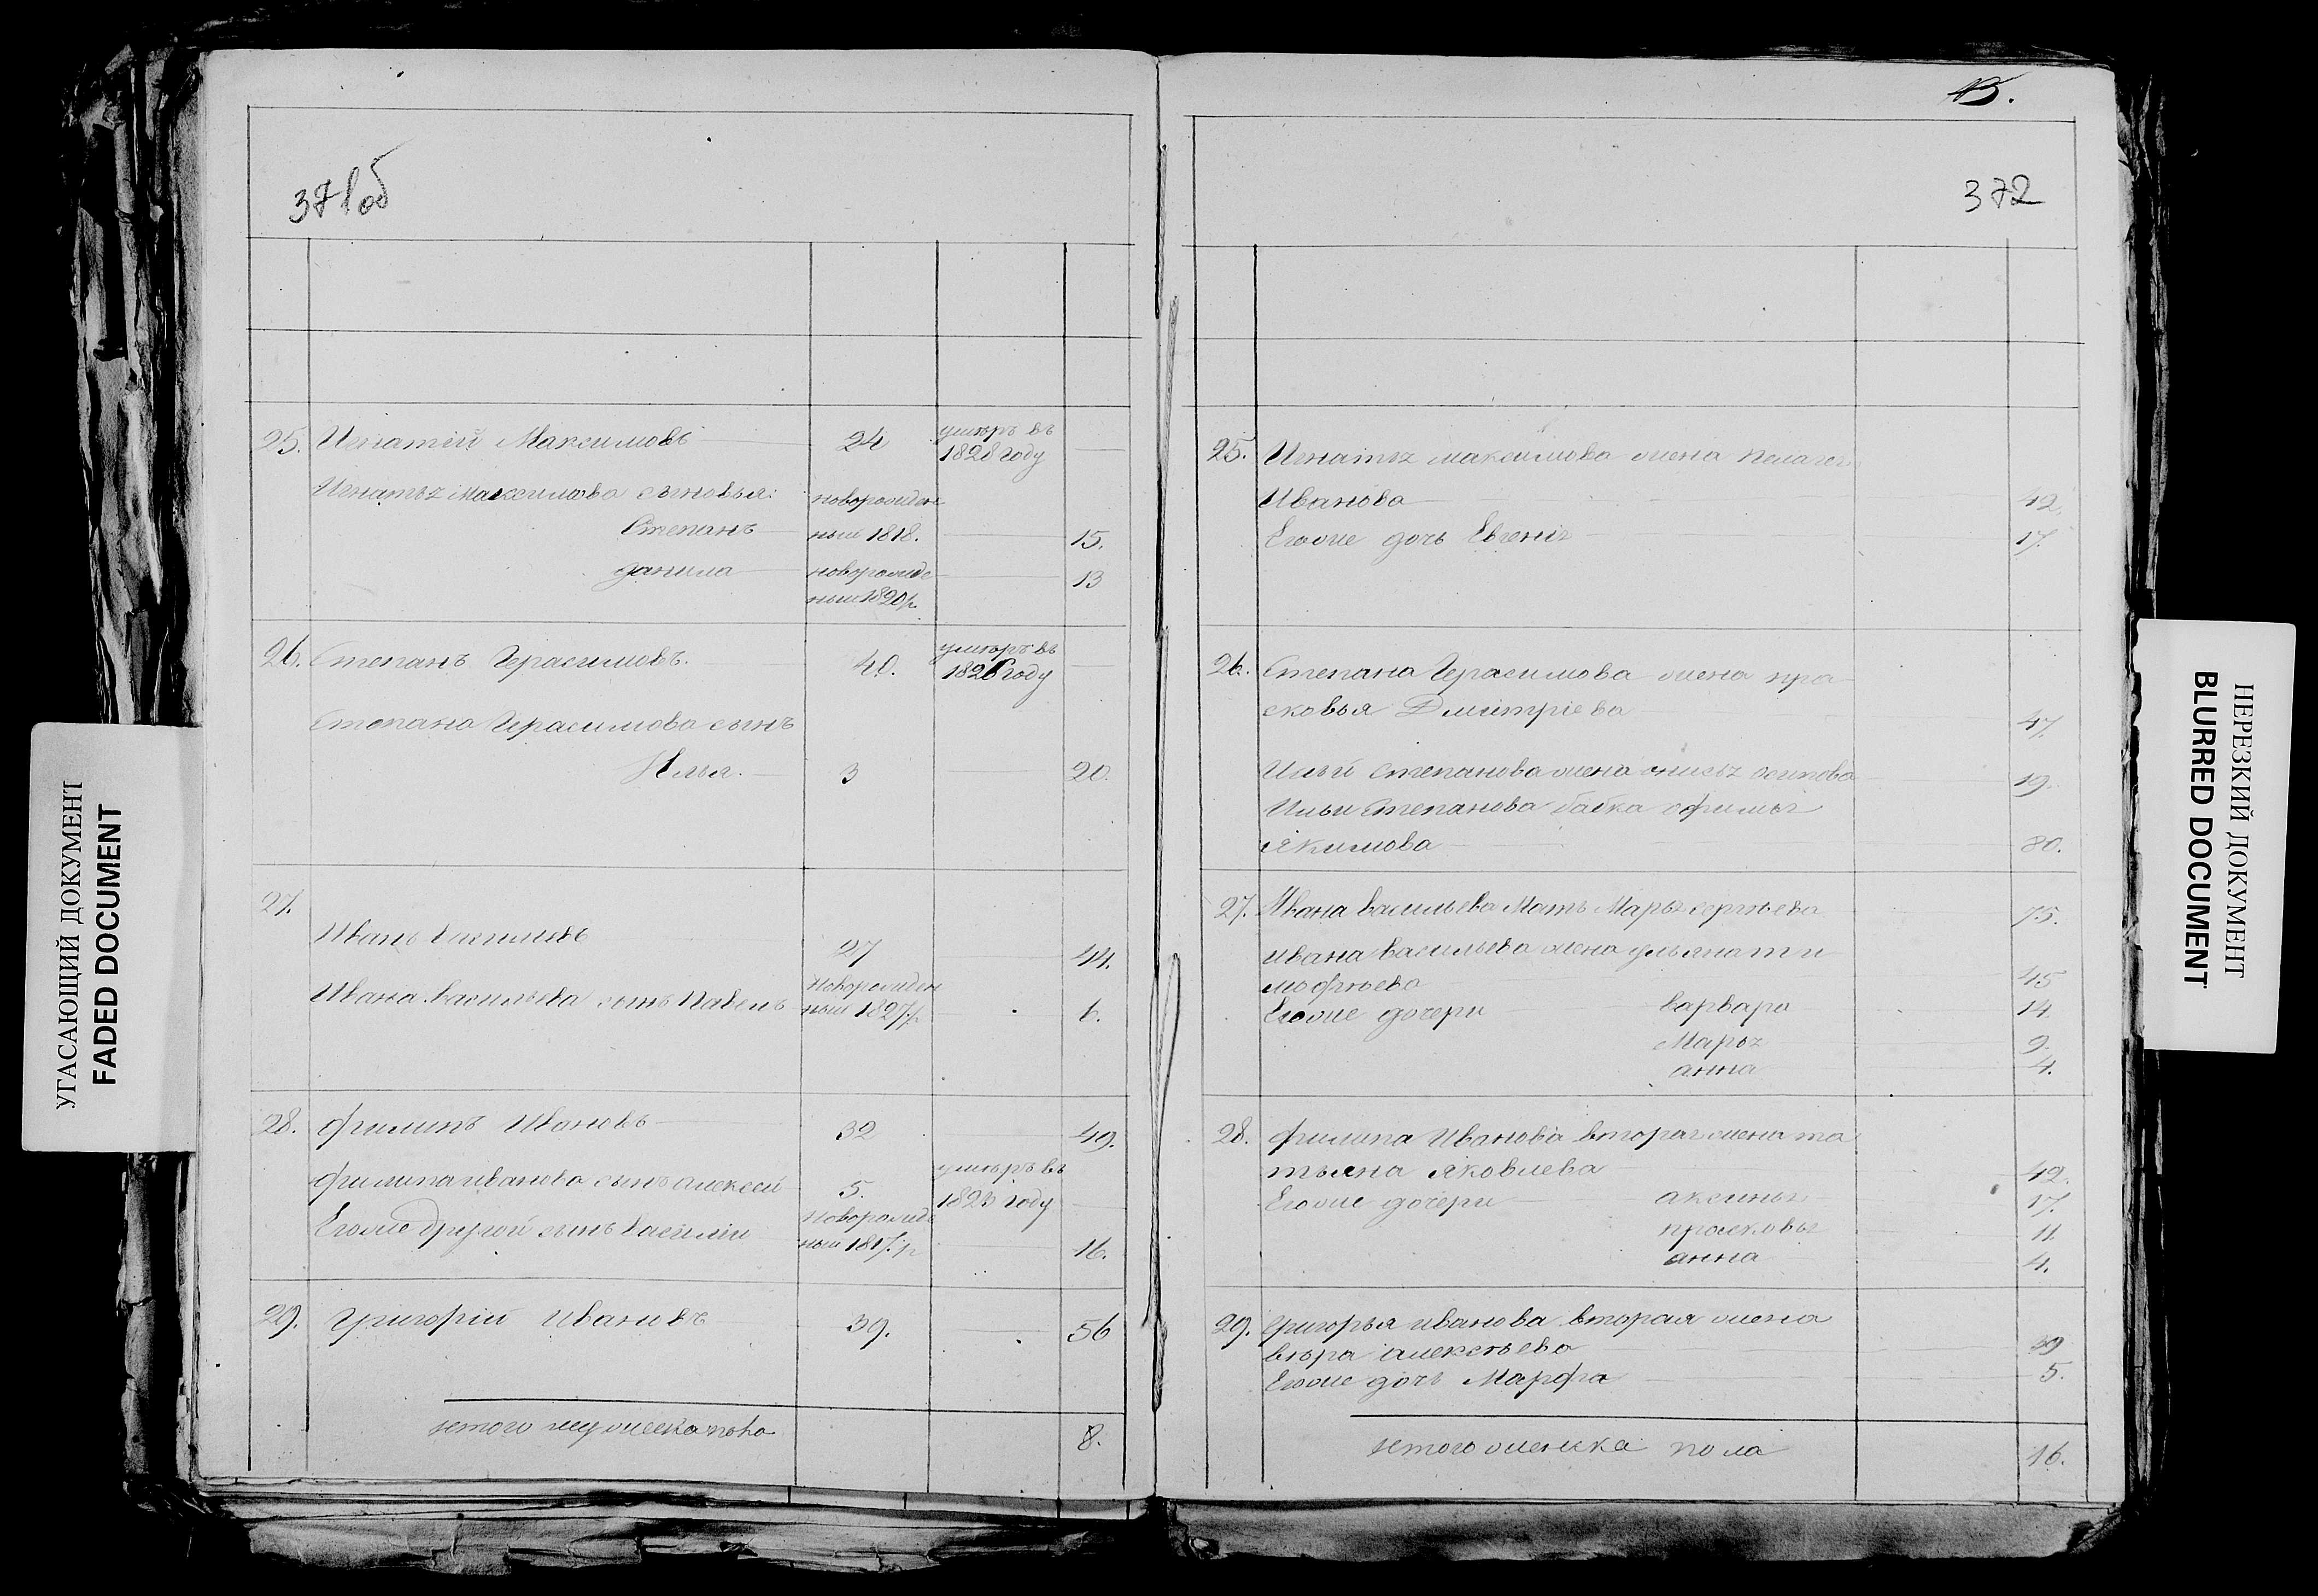 371об
25. Игнатiй Максимовъ 24 умеръ въ
1828 году
Игнатья Максимова сыновья: новорожден
Степанъ ный 1818. 15.
данила новорожде 13
ный 1820 р.
26. Степанъ Герасимовъ. 40. умеръ въ
1826 году
Степана Герасимова сынъ
Илья. 3 20.
27.
Иванъ Васильевъ 27 44.
Ивана Васильева сынъ Павелъ новорожден
ный 1827. р 6.
28. филипъ Ивановъ 32 49.
филипа иванова сынъ алексей 5. умеръ въ
1823 году
Егоже другой сынъ василiи новорожде
ный 1817. р 16.
29. Григорiй Ивановъ 39. 56
итого мужеска пола 8.
13.
372
25. Игнатья максимова жена пелагея
Иванова 42.
Егоже дочь Евгенiя 17.
26. Степана Герасимова жена пра
сковья Дмитрiева 47.
Ильи степанова жена анисья осипова 19.
Ильи Степанова бабка офимья
якимова 80.
27. Ивана васильева Мать Марья сергѣева 75.
ивана васильева жена ульяна ти
мофѣева 45
Егоже дочери варвара 14.
Марья 9.
анна 4.
28. филипа Иванова вторая жена та
тьяна яковлева 42.
Егоже дочери аксинья 17.
прасковья 11
анна 4.
29. Григорья иванова вторая жена
вѣра алексѣева 39
Егоже дочь Марфа 5.
итого женска пола 16.
УГАСАЮЩИЙ ДОКУМЕНТ
FADED DOCUMENT
НЕРЕЗКИЙ ДОКУМЕНТ
BLURRED DOCUMENT